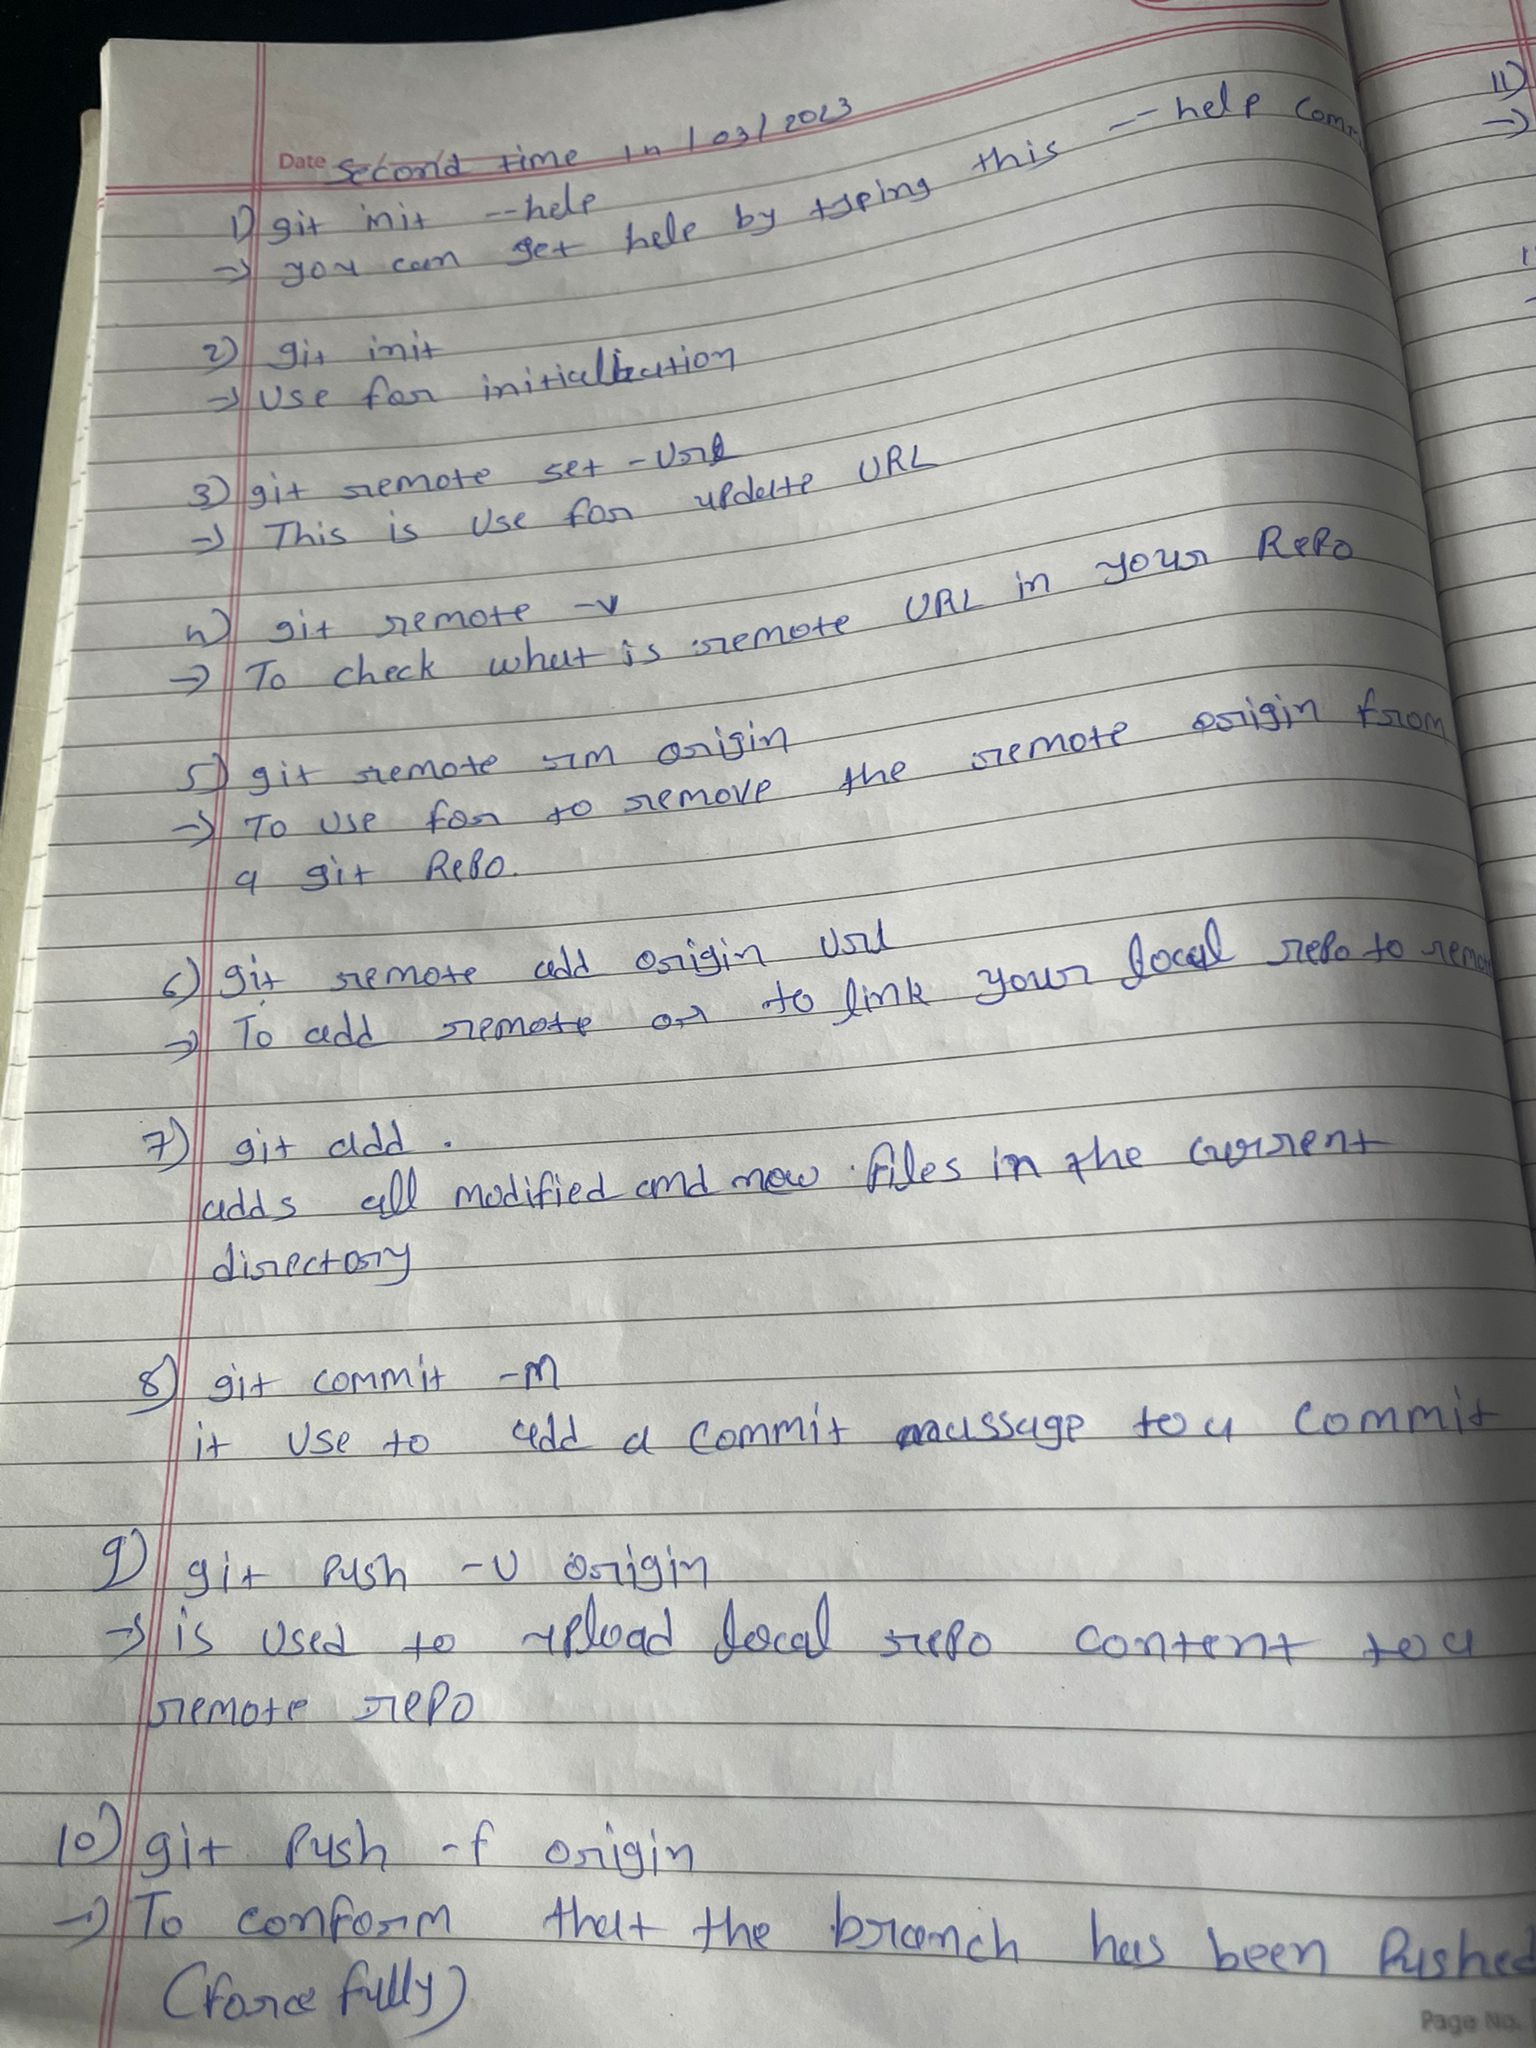 Date second time in 1/03/2023
1) git init --help
→ you can get help by typing this -- help com
2) git init
→ Use for initialization
3) git remote set -Url
→ This is Use for update URL
4) git remote -v
→ To check what is remote URL in your Repo
5) git remote rm origin
→ To Use for to remove the remote origin from
a git Repo.
6) git remote add origin Url
→ To add remote or to link your local repo to remo
7) git add .
adds all modified and new files in the current
directory
8) git commit -m
it Use to add a commit massage to a commit
9) git Push -U origin
→ is Used to upload local repo content to a
remote repo
10) git Push -f origin
→ To conform that the branch has been Pushed
(forcefully)
Page No.
11)
→